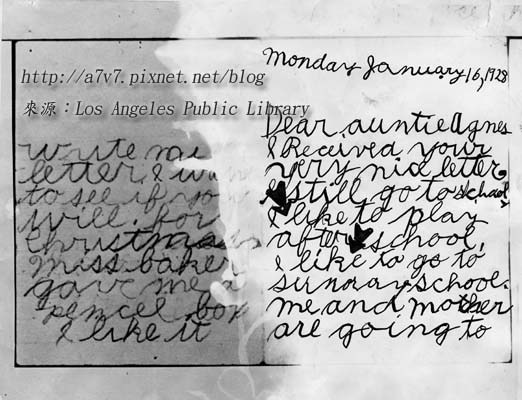 http://a7v7.pixnet.net/blog
來源：Los Angeles Public Library
write me
letter I wan
to see if you
will. for
christmas
miss baker
gave me a
pencel box
I like it
Monday January 16, 1928
Dear auntie Agnes
I Received your
very nice letter,
I still go to school,
I like to play
after school,
I like to go to
sunday school.
me and mother
are going to